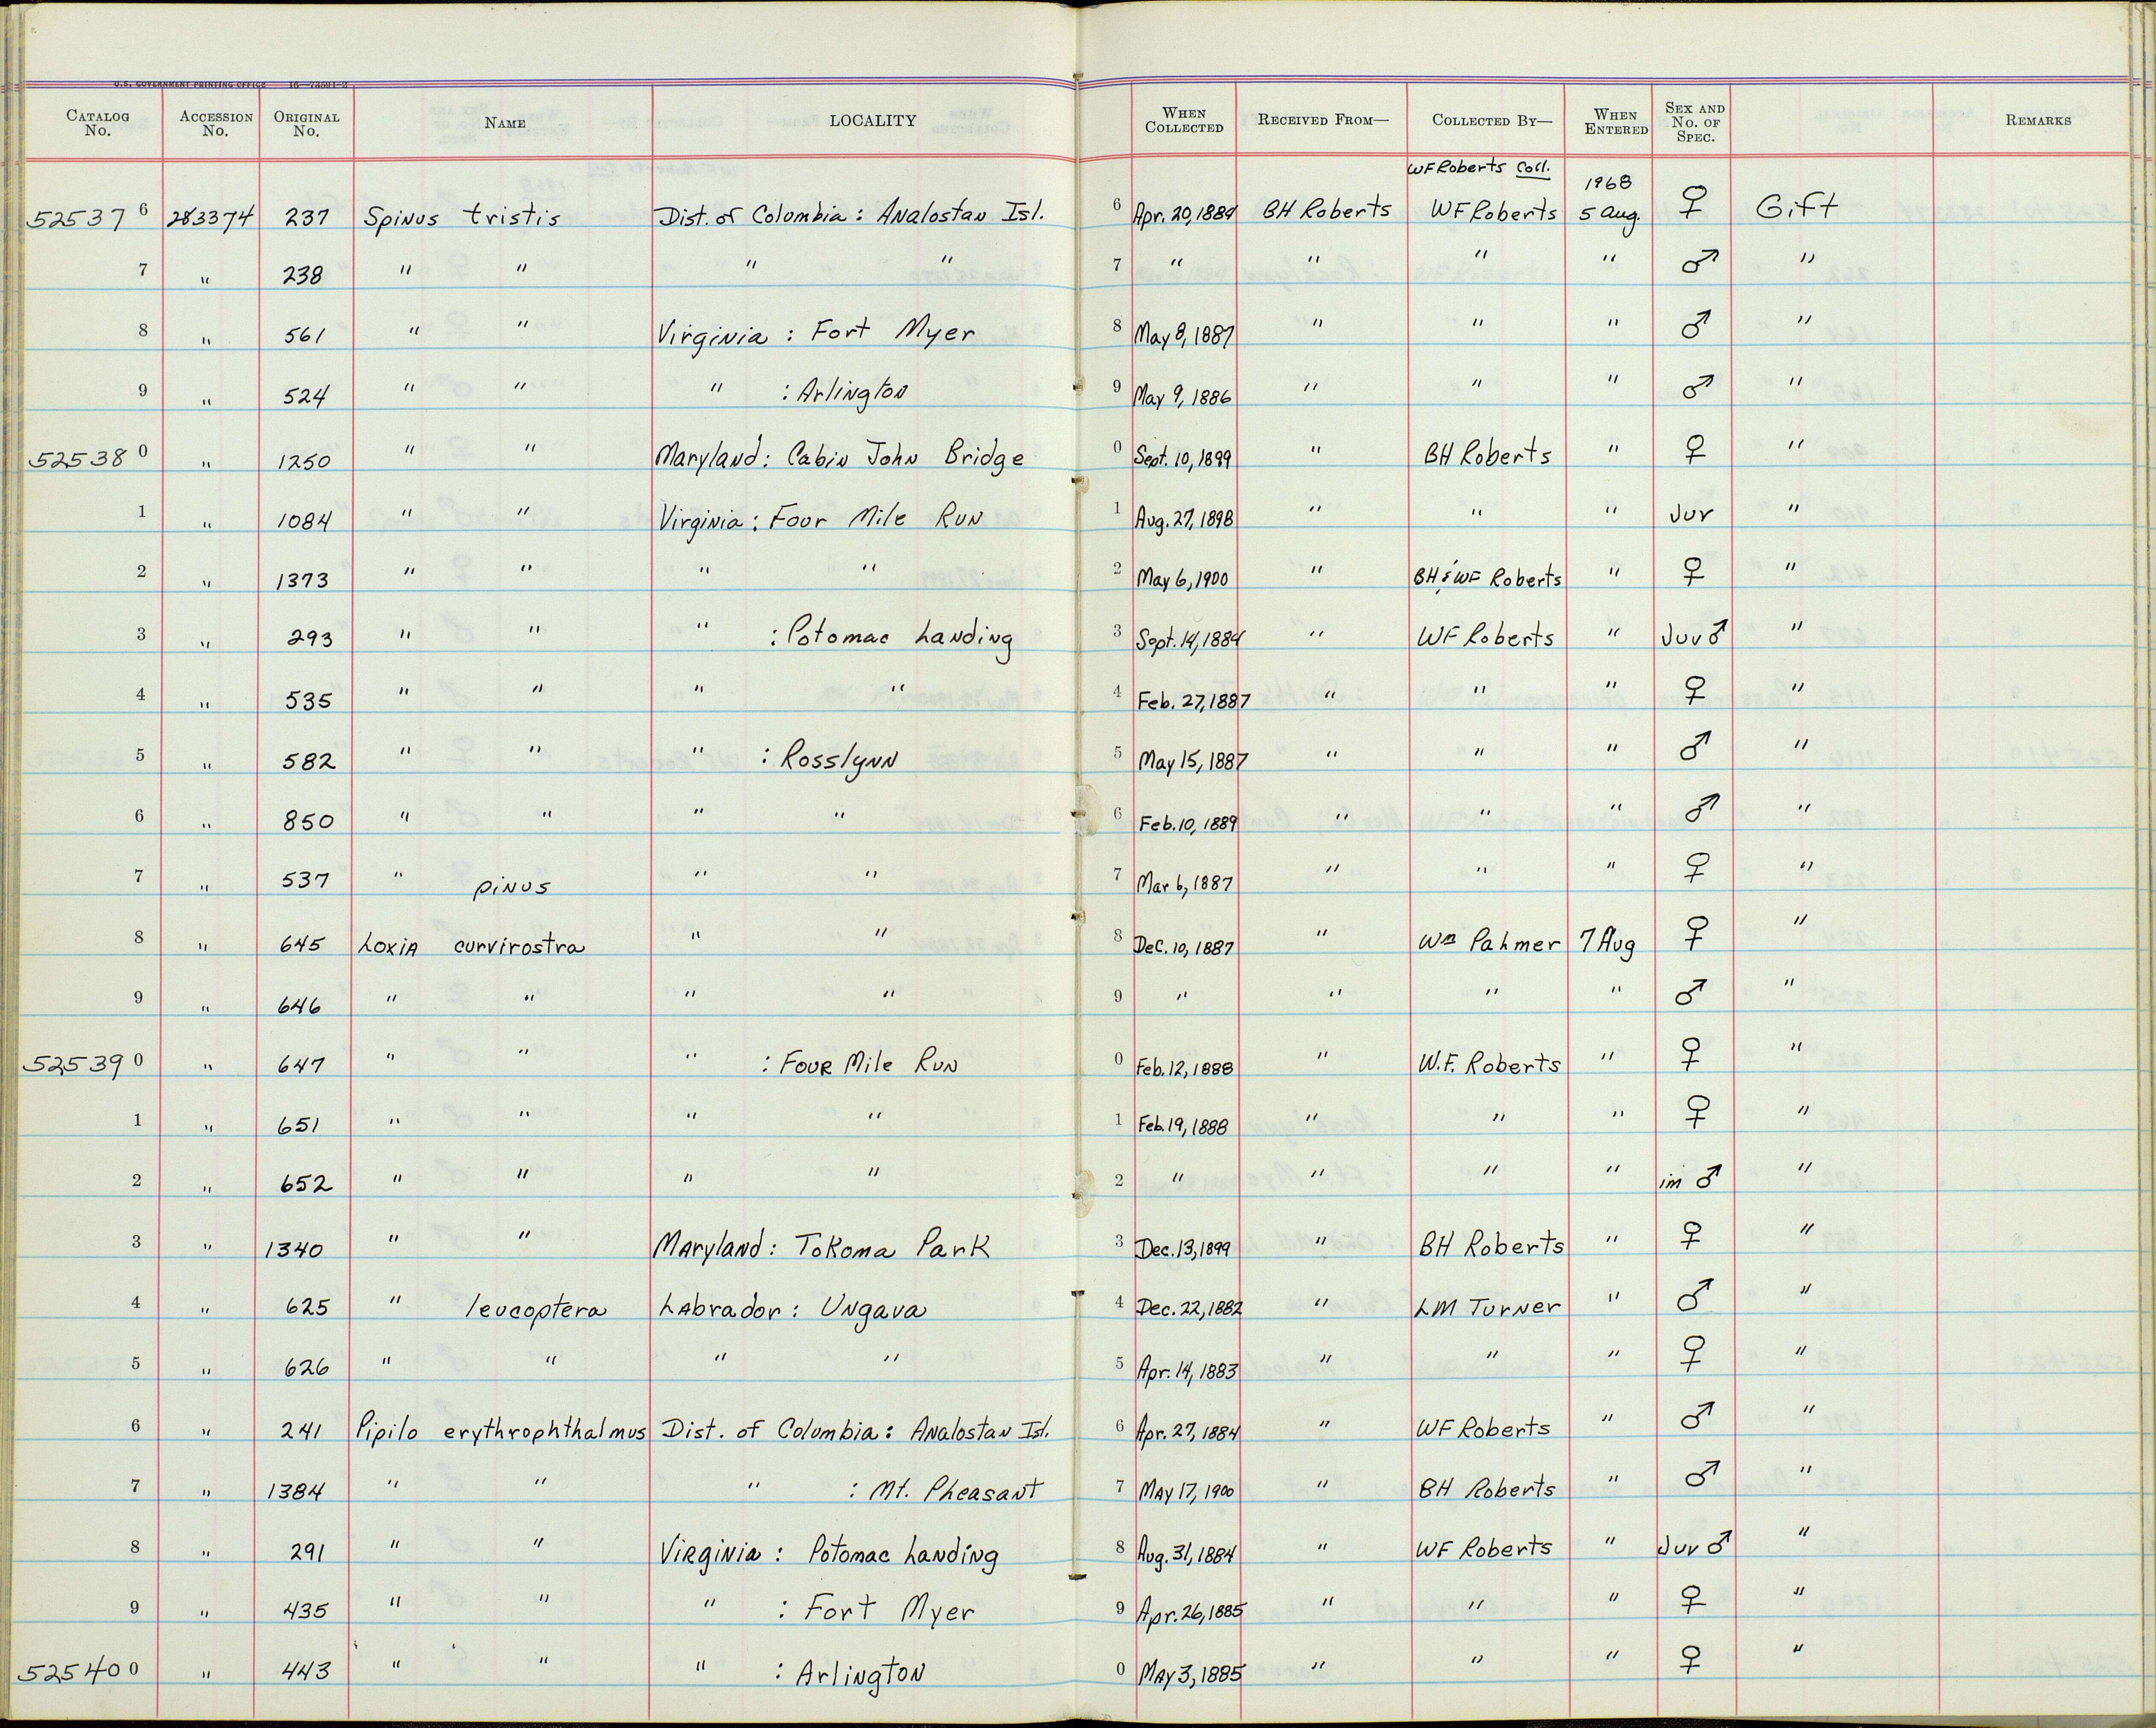 U.S. GOVERNMENT PRINTING OFFICE 16—73591-2
CATALOG No. ACCESSION No. ORIGINAL No. NAME LOCALITY WHEN COLLECTED RECEIVED FROM— COLLECTED BY— WHEN ENTERED SEX AND No. OF SPEC. REMARKS
WF Roberts Coll.
1968
52537 6 283374 237 Spinus tristis Dist. of Columbia: Analostan Isl. 6 Apr. 20, 1884 BH Roberts WF Roberts 5 Aug. ♀ Gift
7 " 238 " " " " 7 " " " " ♂ "
8 " 561 " " Virginia: Fort Myer 8 May 8, 1887 " " " ♂ "
9 " 524 " " " : Arlington 9 May 9, 1886 " " " ♂ "
52538 0 " 1250 " " Maryland: Cabin John Bridge 0 Sept. 10, 1899 " BH Roberts " ♀ "
1 " 1084 " " Virginia: Four Mile Run 1 Aug. 27, 1898 " " " Juv "
2 " 1373 " " " " 2 May 6, 1900 " BH & WF Roberts " ♀ "
3 " 293 " " " : Potomac Landing 3 Sept. 14, 1884 " WF Roberts " Juv ♂ "
4 " 535 " " " " 4 Feb. 27, 1887 " " " ♀ "
5 " 582 " " " : Rosslynn 5 May 15, 1887 " " " ♂ "
6 " 850 " " " " 6 Feb. 10, 1889 " " " ♂ "
7 " 537 " pinus " " 7 Mar 6, 1887 " " " ♀ "
8 " 645 Loxia curvirostra " " 8 Dec. 10, 1887 " Wm Palmer 7 Aug ♀ "
9 " 646 " " " " 9 " " " " ♂ "
52539 0 " 647 " " " : Four Mile Run 0 Feb. 12, 1888 " W.F. Roberts " ♀ "
1 " 651 " " " " 1 Feb. 19, 1888 " " " ♀ "
2 " 652 " " " " 2 " " " " im ♂ "
3 " 1340 " " Maryland: Tokoma Park 3 Dec. 13, 1899 " BH Roberts " ♀ "
4 " 625 " leucoptera Labrador: Ungava 4 Dec. 22, 1882 " LM Turner " ♂ "
5 " 626 " " " " 5 Apr. 14, 1883 " " " ♀ "
6 " 241 Pipilo erythrophthalmus Dist. of Columbia: Analostan Isl. 6 Apr. 27, 1884 " WF Roberts " ♂ "
7 " 1384 " " " : Mt. Pleasant 7 May 17, 1900 " BH Roberts " ♂ "
8 " 291 " " Virginia: Potomac Landing 8 Aug. 31, 1884 " WF Roberts " Juv ♂ "
9 " 435 " " " : Fort Myer 9 Apr. 26, 1885 " " " ♀ "
52540 0 " 443 " " " : Arlington 0 May 3, 1885 " " " ♀ "